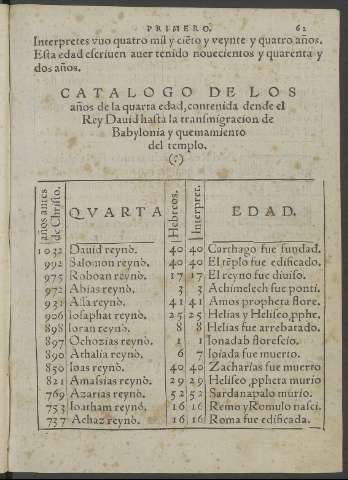 PRIMERO. 62
Interpretes vuo quatro mil y ciẽto y veynte y quatro años.
Esta edad escriuen auer tenido nouecientos y quarenta y
dos años.
CATALOGO DE LOS
años de la quarta edad, contenida dende el
Rey Dauid hasta la transmigracion de
Babylonia y quemamiento
del templo.
(:)
años antes de Christo. QVARTA Hebreos. Interpret. EDAD.
1032 Dauid reynò. 40 40 Carthago fue fundad.
992 Salomon reynò. 40 40 El tẽplo fue edificado.
975 Roboan reynò. 17 17 El reyno fue diuiso.
972 Abias reynò. 3 3 Achimelech fue ponti.
931 Assa reynò. 41 41 Amos propheta flore.
906 Iosaphat reynò. 25 25 Helias y Heliseo, pphe.
898 Ioran reynò. 8 8 Helias fue arrebatado.
897 Ochozias reynò. 1 1 Ionadab florescio.
890 Athalia reynò. 6 7 Ioiada fue muerto.
850 Ioas reynò. 40 40 Zacharias fue muerto
821 Amassias reynò. 29 29 Heliseo ppheta murio
769 Azarias reynò. 52 52 Sardanapalo murio.
753 Ioatham reynò. 16 16 Remo y Romulo nasci.
737 Achaz reynò. 16 16 Roma fue edificada.